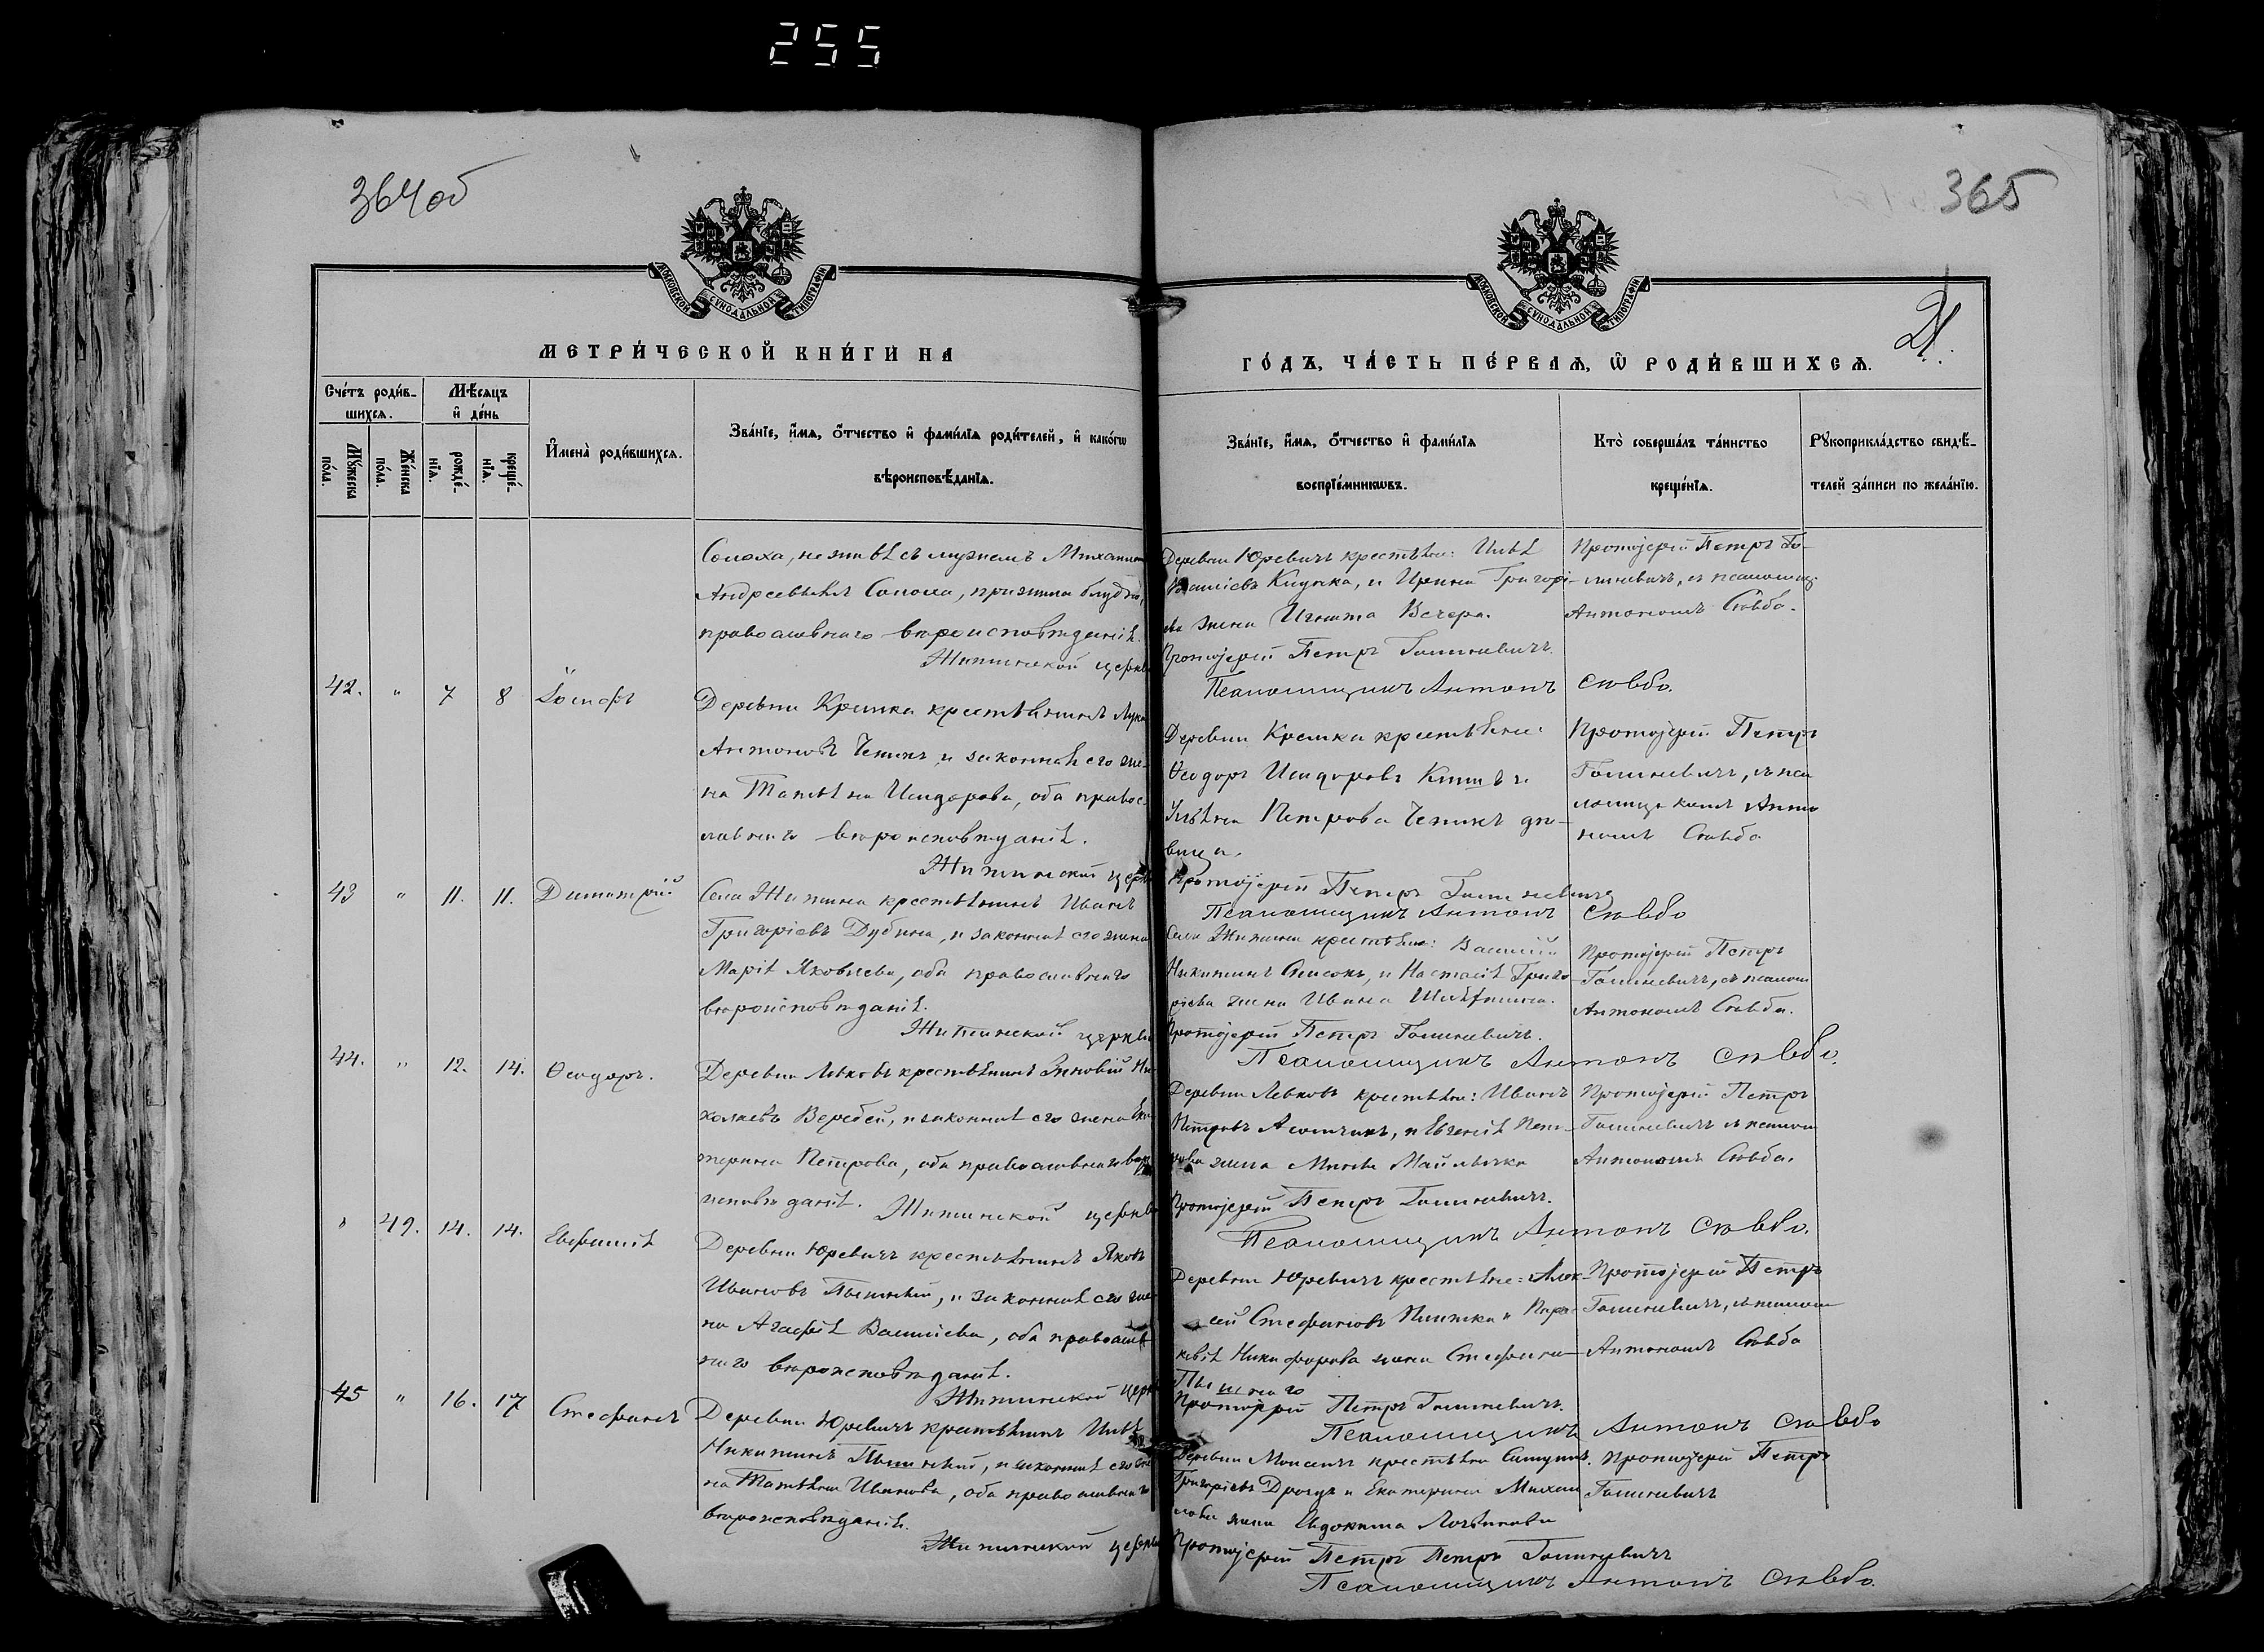 255
364 об
365
МОСКОВСКОЙ СУНОДАЛЬНОЙ ТИПОГРАФІИ
МОСКОВСКОЙ СУНОДАЛЬНОЙ ТИПОГРАФІИ
21.
МЕТРИ́ЧЕСКОЙ КНИ́ГИ НА
ГО́ДЪ, ЧА́СТЬ ПЕ́РВАЯ, Ѿ РОДИ́ВШИХСЯ.
Сче́тъ роди́в-
шихся.
Мѣ́сяцъ
и де́нь
Мꙋ́жеска
по́ла.
Же́нска
по́ла.
рожде́-
нїя.
креще́-
нїя.
Имена̀ роди́вшихся.
Зва́нїе, и́мя, о́тчество и фами́лїя роди́телей, и како́гѡ
вѣроисповѣ́данїя.
Зва́нїе, и́мя, о́тчество и фами́лїя
воспрїе́мникѡвъ.
Кто̀ соверша́лъ та́инство
креще́нїя.
Рꙋкоприкла́дство свидѣ́-
телей за́писи по жела́нїю.
Солоха, не живя съ мужемъ Михаиломъ
Андреевымъ Солоха, прижила блудно,
православнаго вѣроисповѣданія.
Житинской церкви
Деревни Юревичъ крестьяне: Илья
Василіевъ Кидука, и Ирина Григорі-
ева жена Игната Вечера.
Протоіерей Петръ Голиневичъ.
Псаломщикъ Антонъ Сковбо.
Протоіерей Петръ Го-
линевичъ, съ псаломщ.
Антономъ Сковбо.
42. " 7 8 Іосифъ
Деревни Кремка крестьянинъ Лука
Антоновъ Чепикъ и законная его же-
на Татьяна Исидорова, оба право-
славнаго вѣроисповѣданія.
Житинской церкви
Деревни Кремки крестьяне:
Ѳеодоръ Исидоровъ
Ульяна Петрова Чепикъ дѣ-
вица.
Протоіерей Петръ Голиневичъ
Псаломщикъ Антонъ Сковбо
Протоіерей Петръ
Голиневичъ, съ пса
ломщикомъ Анто
номъ Сковбо
43 " 11. 11. Димитрій
Села Житина крестьянинъ Иванъ
Григоріевъ Дубина, и законная его жена
Марія Яковлева, оба православнаго
вѣроисповѣданія.
Житинской церкви
Села Житина крестьяне: Василій
Никитинъ Слисокъ, и Настасія Григо
ріева жена Ивана
Протоіерей Петръ Голиневичъ.
Псаломщикъ Антонъ Сковбо.
Протоіерей Петръ
Голиневичъ, съ псалом
Антономъ Сковбо.
44. " 12. 14. Ѳеодоръ.
Деревни Левковъ крестьянинъ Зиновій Ни-
колаевъ Веребей, и законная его жена Ека-
терина Петрова, оба православнаго вѣро
исповѣданія. Житинской церкви
Деревни Левковъ крестьяне: Иванъ
Петровъ и Евгенія Пет-
рова жена
Протоіерей Петръ Голиневичъ.
Псаломщикъ Антонъ Сковбо.
Протоіерей Петръ
Голиневичъ съ псалом
Антономъ Сковбо.
" 49. 14. 14. Евфимія
Деревни Юревичъ крестьянинъ Яковъ
Ивановъ и законная его же-
на Агафія Василіева, оба православ
наго вѣроисповѣданія.
Житинской церкви
Деревни Юревичъ крестьяне: Алек-
сѣй Стефановъ и Парас-
кевія Никифорова жена Стефана
Протоіерей Петръ Голиневичъ.
Псаломщикъ Антонъ Сковбо
Протоіерей Петръ
Голиневичъ, съ псалом
Антономъ Сковбо
45 " 16. 17 Стефанъ
Деревни Юревичъ крестьянинъ Илья
Никитинъ и законная его же
на Татьяна Иванова, оба православнаго
вѣроисповѣданія.
Житинской церкви
Деревни Моисеичъ крестьяне
Григоріевъ Дроздъ и Екатерина Михаи
лова жена Евдокима
Протоіерей Петръ Петръ Голиневичъ
Псаломщикъ Антонъ Сковбо.
Протоіерей Петръ
Голиневичъ